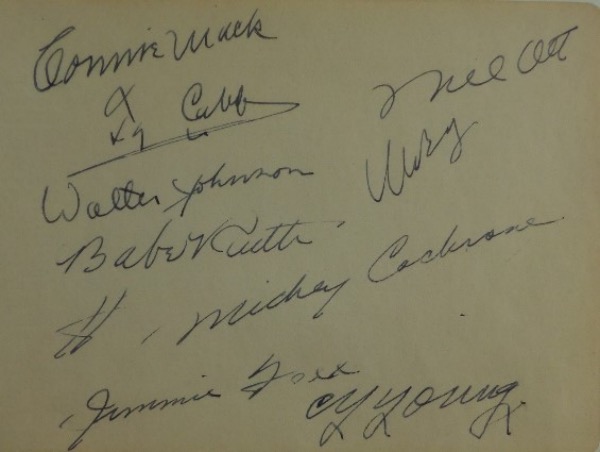 Connie Mack
Ty Cobb
Mel Ott
Walter Johnson
Babe Ruth
Mickey Cochrane
Jimmie Foxx
Cy Young